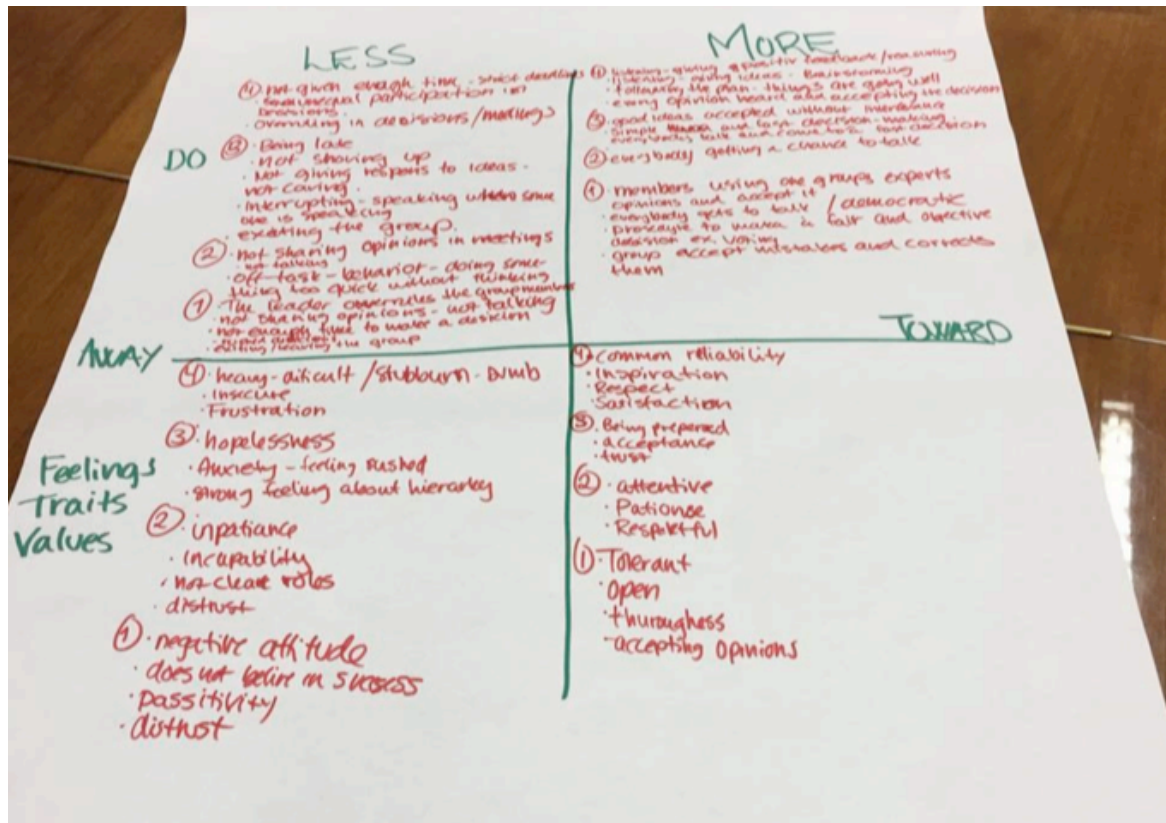 LESS
④ not given enough time - strict deadlines
unequal participation in
decisions.
· overriding in decisions/meetings
DO
③ · Being late
· not shoving up
· Not giving respons to ideas -
not caring.
· interrupting - speaking some
one is speaking
· exiting the group.
② · not sharing opinions in meetings
· not talking
off-task-behavior - doing some
thing too quick without thinking
① · The leader overrules the groupmember
· not sharing opinions - not talking
· not enough time to make a decision
· exiting/leaving the group
MORE
④ listening - giving positiv feedback/reasuring
· listening - giving ideas - Brainstorming
· following the plan - things are going well
· every opinion heard and accepting the decision
③ · good ideas accepted without
· simple and fast decision-making
everybody talk and come to a fast decision
② · everybody getting a chance to talk
① · members using one groups experts
opinions and accept it
· everybody gets to talk / democratic
· to make a fast and objective
decision ex. voting
· group accept mistakes and corrects
them
AWAY
TOWARD
Feelings
Traits
Values
④ · heavy-dificult / stubburn - Dumb
· Insecure
· Frustration
③ · hopelessness
· Anxiety - feeling rushed
· strong feeling about hierarkey
② · inpatiance
· Incapability
· not clear roles
· distrust
① · negative attitude
· does not belive in success
· passitivity
· distrust
④ · common reliability
· Inspiration
· Respect
· Satisfaction
③ · Being prepared
· acceptance
· trust
② · attentive
· Patience
· Respektful
① · Tolerant
· open
· thuroughess
· accepting opinions